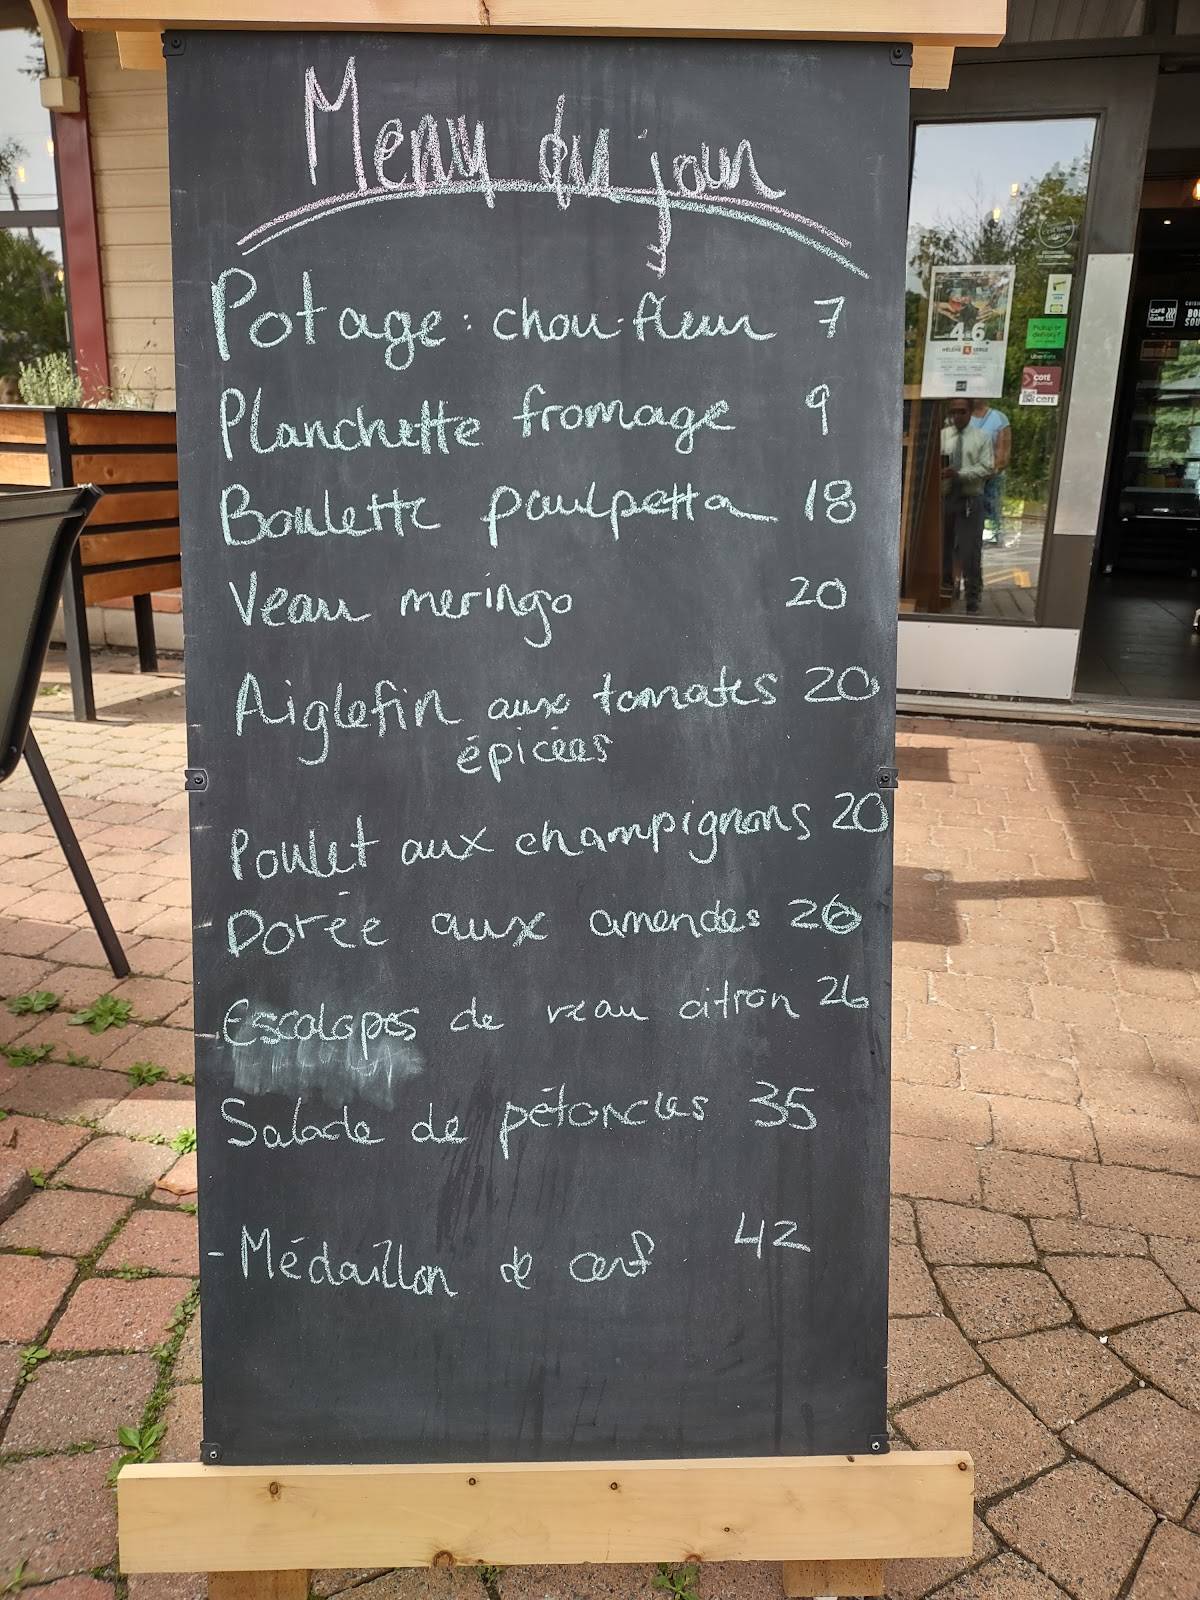 Menu du jour
Potage : chou-fleur 7
Planchette fromage 9
Boulette paulpetta 18
Veau meringo 20
Aiglefin aux tomates 20
épicées
Poulet aux champignons 20
Dorée aux amendes 26
- Escalopes de veau citron 26
Salade de pétoncles 35
- Médaillon de cerf 42
4.6
HÉLÈNE & SERGE
Pickup or
delivery?
COTÉ